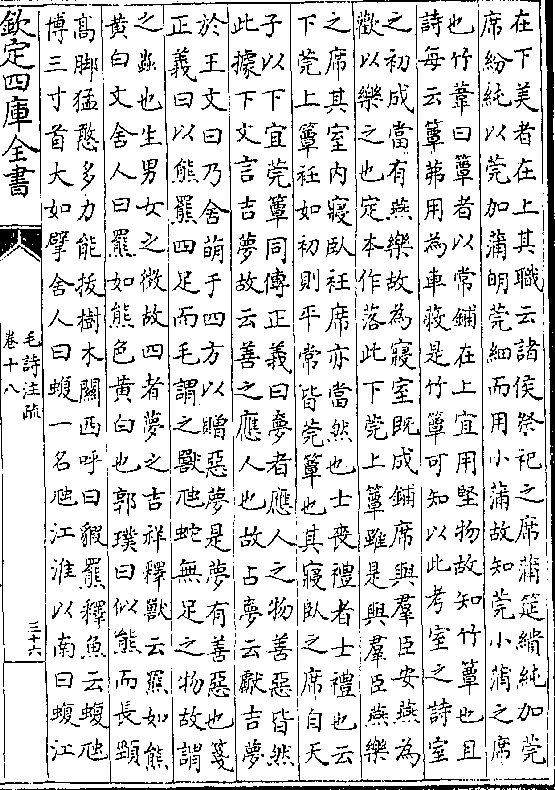 在下美者在上其職云諸侯祭祀之席蒲筵繢純加莞
席紛純以莞加蒲明莞細而用小蒲故知莞小蒲之席
也竹葦曰簟者以常鋪在上宜用堅物故知竹簟也且
詩每云簟茀用為車蔽是竹簟可知以此考室之詩室
之初成當有燕樂故為寢室既成鋪席與羣臣安燕為
歡以樂之也定本作落此下莞上簟雖是與羣臣燕樂
之席其室內寢臥衽席亦當然也士喪禮者士禮也云
下莞上簟衽如初則平常皆莞簟也其寢臥之席自天
子以下宜莞簟同傳正義曰夢者應人之物善惡皆然
此據下文言吉夢故云善之應人也故占夢云獻吉夢
於王文曰乃舍萌于四方以贈惡夢是夢有善惡也箋
正義曰以熊羆四足而毛謂之獸虺蛇無足之物故謂
之蟲也生男女之徵故四者夢之吉祥釋獸云羆如熊
黃白文舍人曰羆如熊色黃白也郭璞曰似熊而長頸
高脚猛憨多力能拔樹木關西呼曰貑羆釋魚云蝮虺
博三寸首大如擘舍人曰蝮一名虺江淮以南曰蝮江
欽定四庫全書
毛詩注疏
卷十八
三十六